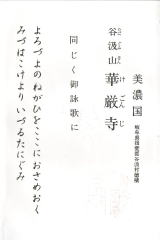 美濃国
岐阜県揖斐郡谷汲村徳積
谷汲山 華厳寺
けごんじ
同じく御詠歌に
よろづよのねがひをここにおさめおく
みづはこけよりいづるたにぐみ